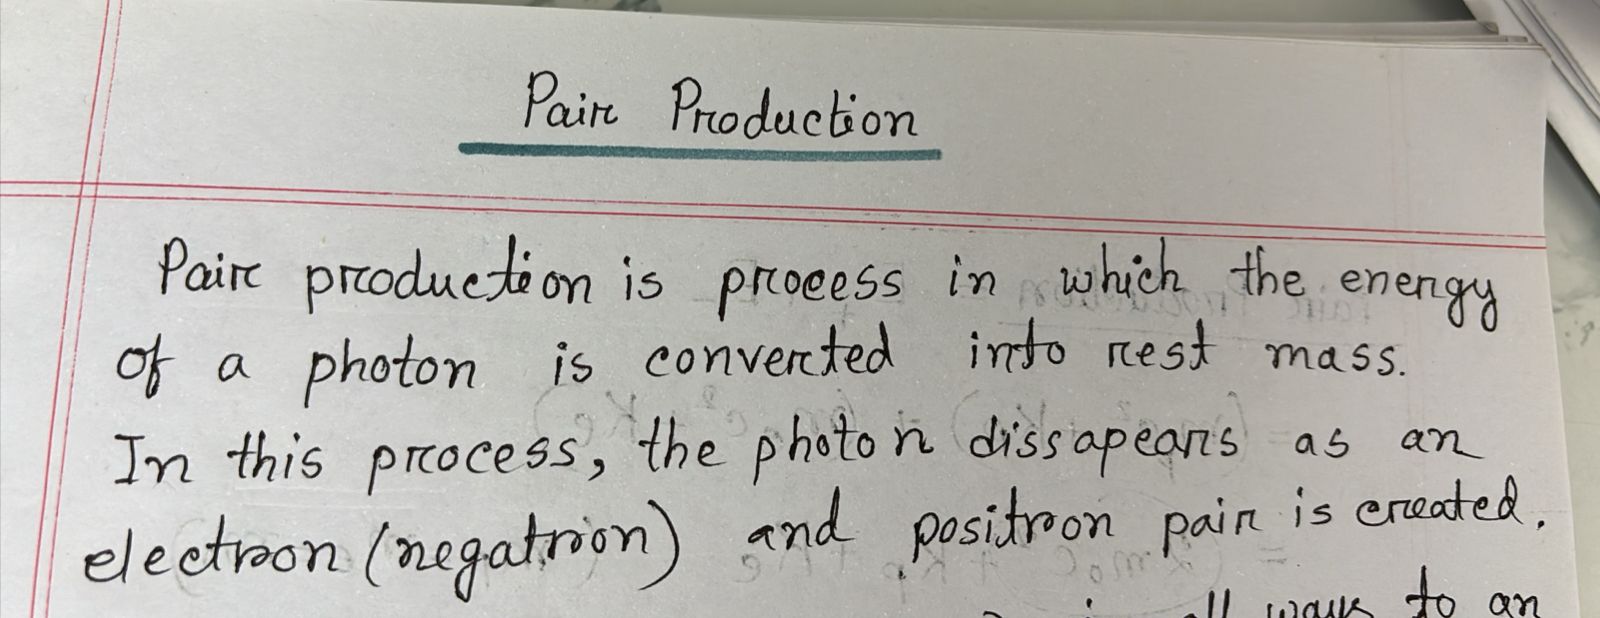 Pair Production
Pair production is process in which the energy
of a photon is converted into rest mass.
In this process, the photon dissapears as an
electron (negatron) and positron pair is created.
to an